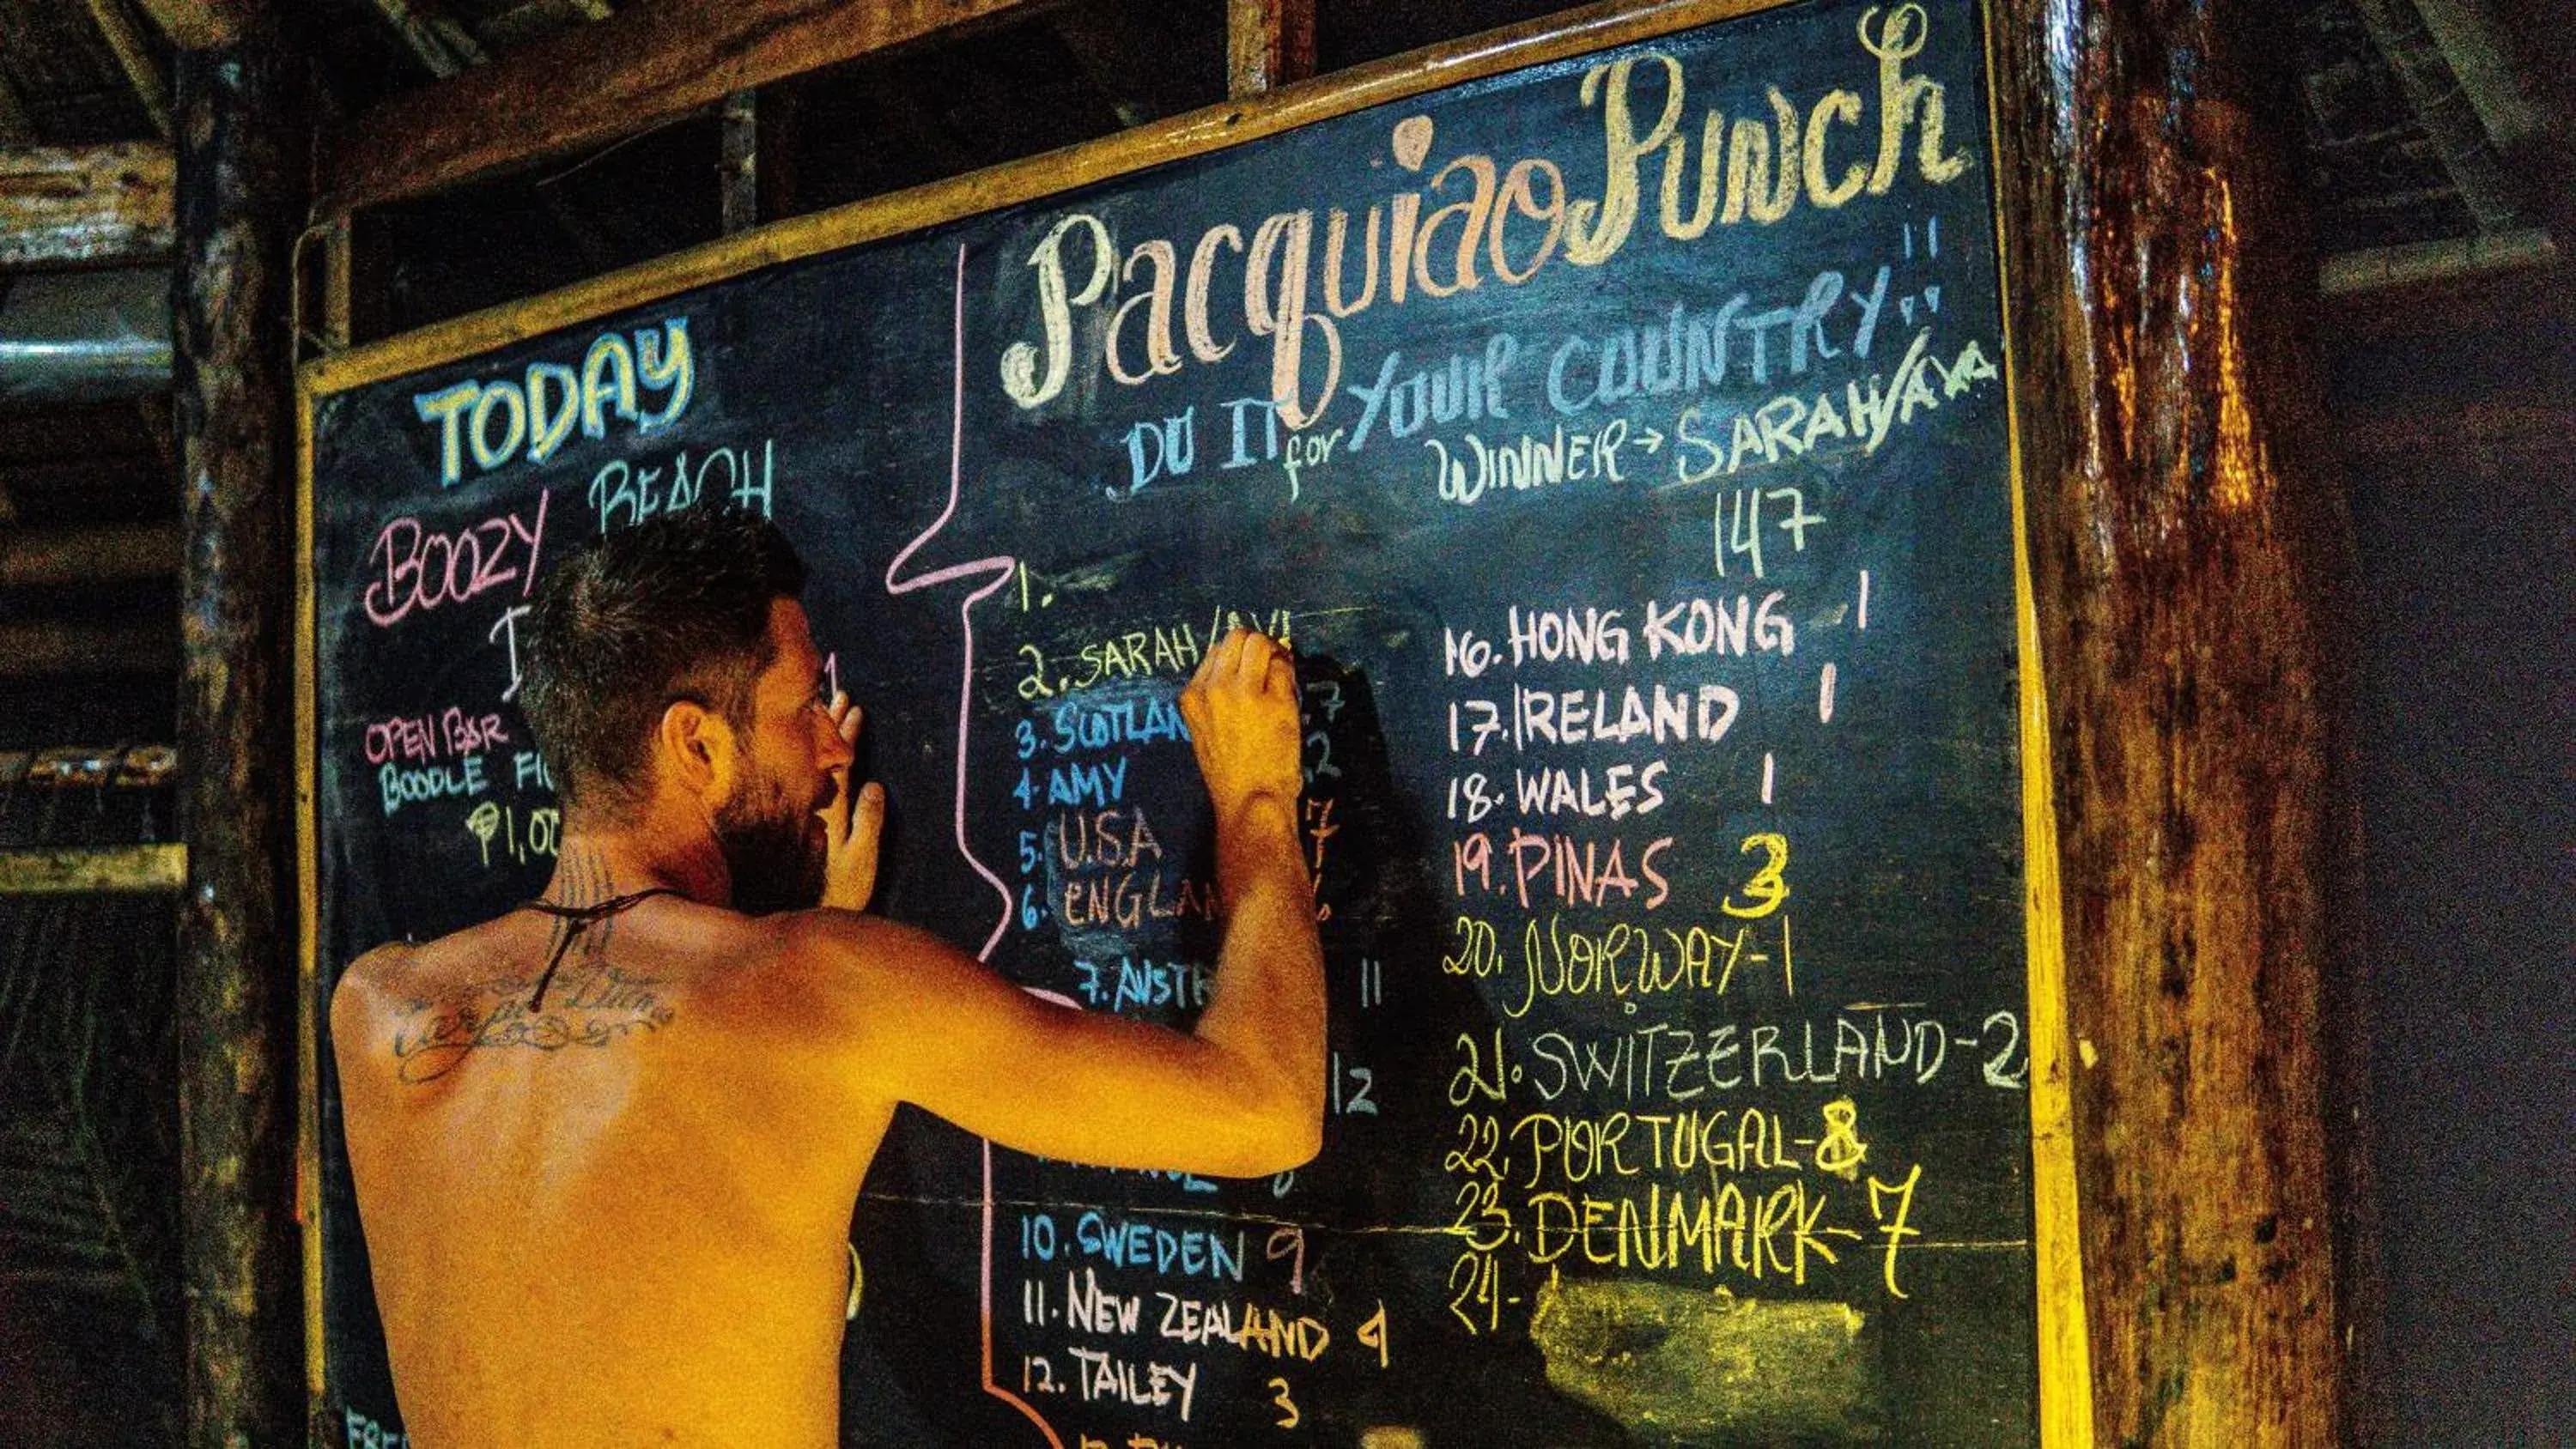 TODAY
BOOZY BEACH
OPEN BAR
BOODLE
₱1,00
Pacquiao Punch
DO IT for YOUR COUNTRY!!
WINNER → SARAH/AVA
147
1.
2. SARAH/
3. SCOTLAN
4. AMY
5. U.S.A
6. ENGLAN
7. AUSTR 11
12
10. SWEDEN 9
11. NEW ZEALAND 4
12. TAILEY 3
16. HONG KONG 1
17. IRELAND 1
18. WALES 1
19. PINAS 3
20. NORWAY - 1
21. SWITZERLAND - 2
22. PORTUGAL - 8
23. DENMARK - 7
24 -